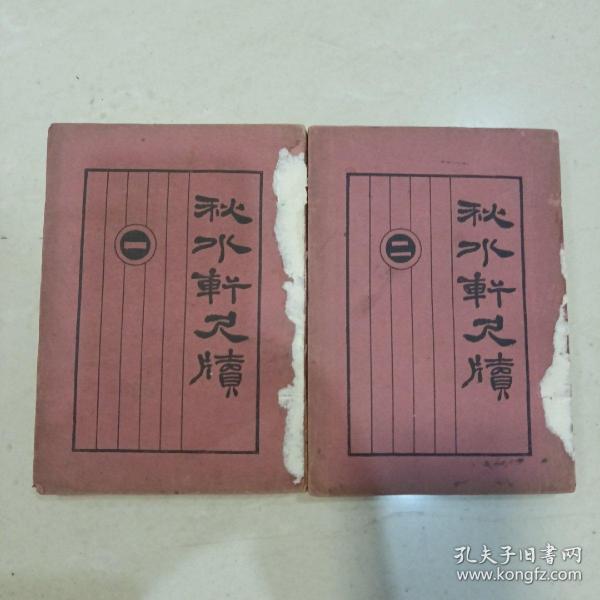 秋水軒尺牘
一
秋水軒尺牘
二
孔夫子旧書网
www.kongfz.com